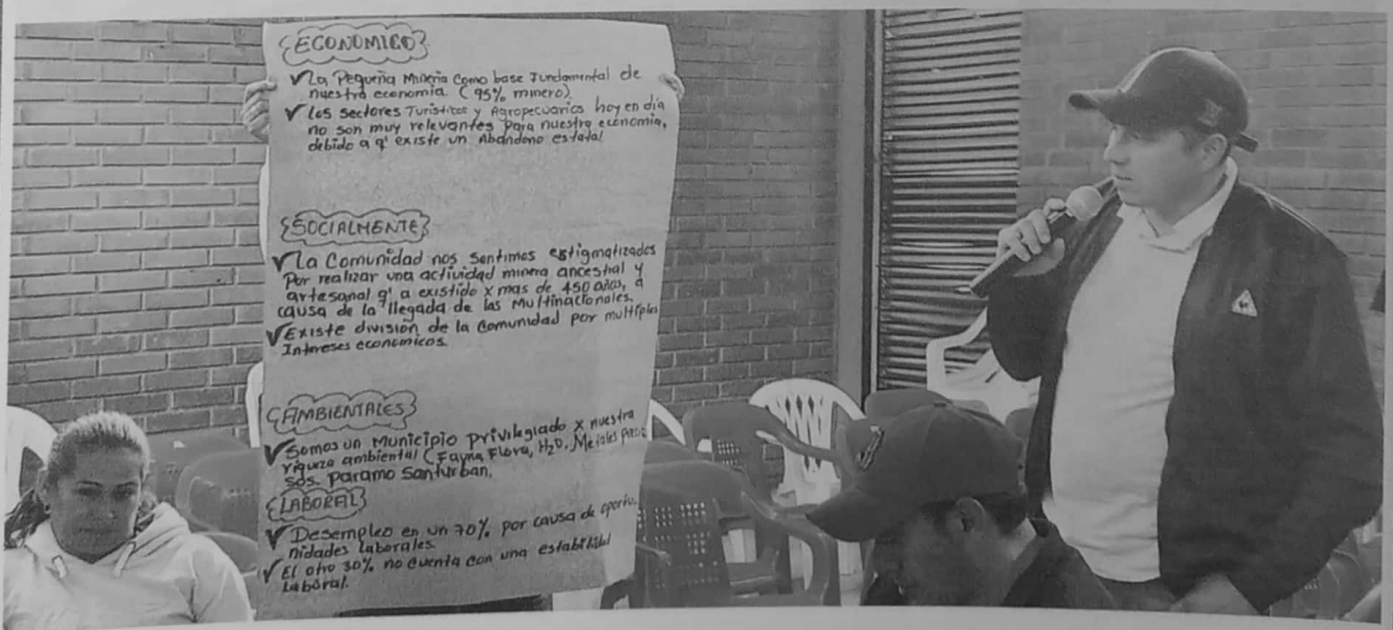 ECONOMICO
✓ La Pequeña Minería como base Fundamental de
nuestra economía. (95% minero)
✓ Los sectores Turísticos y Agropecuarios hoy en día
no son muy relevantes para nuestra economía,
debido a q' existe un Abandono estatal
SOCIALMENTE
✓ La Comunidad nos sentimos estigmatizados
Por realizar una actividad minera ancestral y
artesanal q' a existido x mas de 450 años, a
causa de la llegada de las Multinacionales.
✓ Existe división de la Comunidad por multiples
Intereses economicos.
AMBIENTALES
✓ Somos un Municipio privilegiado x nuestra
riqueza ambiental (Fauna, Flora, H2O, Metales Precio
sos. Paramo Santurban.
LABORAL
✓ Desempleo en un 70% por causa de oportu-
nidades laborales.
✓ El otro 30% no cuenta con una estabilidad
Laboral.